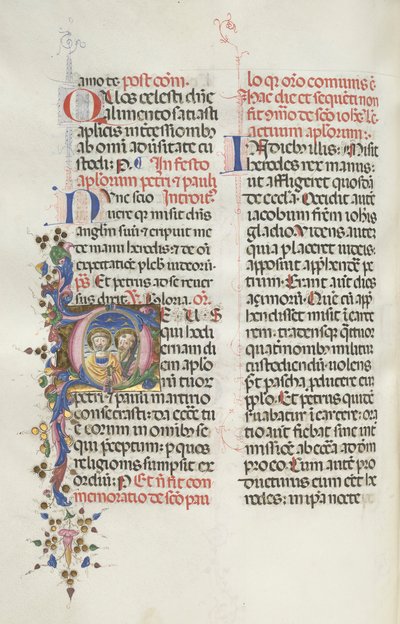 amo te post com̄.
Q̄llos celesti dn̄e
alimento satiasti
aplicis intercessionib᷒
ab om̄i aduersitate cu
stodi: P. In festo
aplorum petri & pauli
Nunc scio Introit᷒
uere qr misit dn̄s
anglm suū: & eripuit me
de manu herodis: & de om̄i
expectatiōe plebis iudeorū:
Et petrus ad se reuer
sus dixit. Gloria. or̄.
DEUS
qui hodi
ernam di
em aplo
rū tuor
petri & pauli martirio
consecrasti: da eccē tue
eorum in omīb᷒ se
qui p̄ceptum: p quos
religionis sumpsit ex
ordiū: P Et n̄ fit com
memoratio de sc̄o pau
lo qr or̄o comunis ē
hac die et sequēti non
fit com̄o de sc̄o iohe. Le
ctio actuum aplorum:
In dieb᷒ illis: Misit
herodes rex manus:
ut affligeret quosdā
de eccl̄a. Occidit autē
iacobum frēm iohis
gladio. Videns autē
qr placeret iudeis:
apposuit app̄hendē pe
trum. Erant autē dies
açimorū. Quē cū app̄
hendisset misit ī carce
rem: tradens q̄ttuor
quatnionib᷒ militū
custodiendū: uolens
post pascha pducere eū
pplo. Et petrus quidē
seruabatur ī carcere: oro
autē fiebat sine int̄
missiōe ab ecc̄a ad dm̄
pro eo. Cum autē pro
ducturus eum eēt he
rodes: in ipa nocte